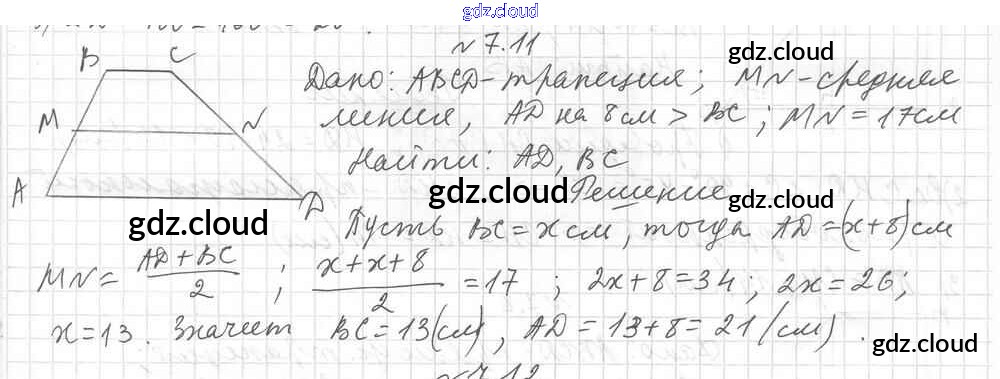 gdz.cloud
№ 7.11
B C gdz.cloud
Дано: ABCD-трапеция; MN-средняя
M N линия, AD на 8 см > BC; MN = 17 см
gdz.cloud
Найти: AD, BC
A D gdz.cloud Решение gdz.cloud
gdz.cloud Пусть BC = x см, тогда AD = (x+8) см
MN = (AD + BC)/2 ; (x+x+8)/2 = 17 ; 2x+8=34; 2x=26;
x=13. Значит BC = 13 (см), AD = 13+8 = 21 (см).
gdz.cloud
№ 7.12